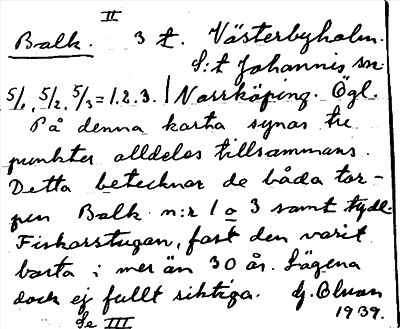 II
Balk. 3 t. Västerbyholm.
S:t Johannis sn
5/1, 5/2, 5/3 = 1.2.3. | Norrköping. Ögl.
På denna karta synas tre
punkter alldeles tillsammans.
Detta betecknar de båda tor-
pen Balk n:r 1 o 3 samt tydl.
Fiskarstugan, fast den varit
borta i mer än 30 år. Lägena
dock ej fullt riktiga. G. Blman
1939.
Se III